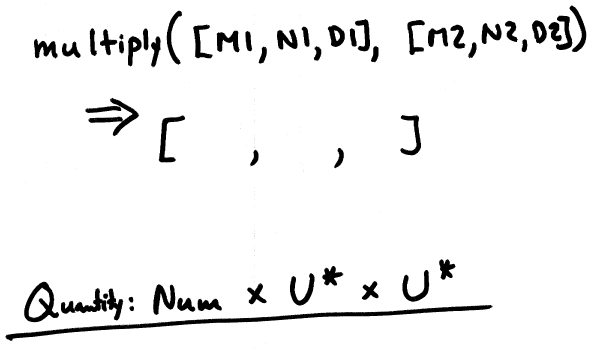 multiply([M1, N1, D1], [M2, N2, D2])
⇒ [ , , ]
Quantity: Num × U* × U*